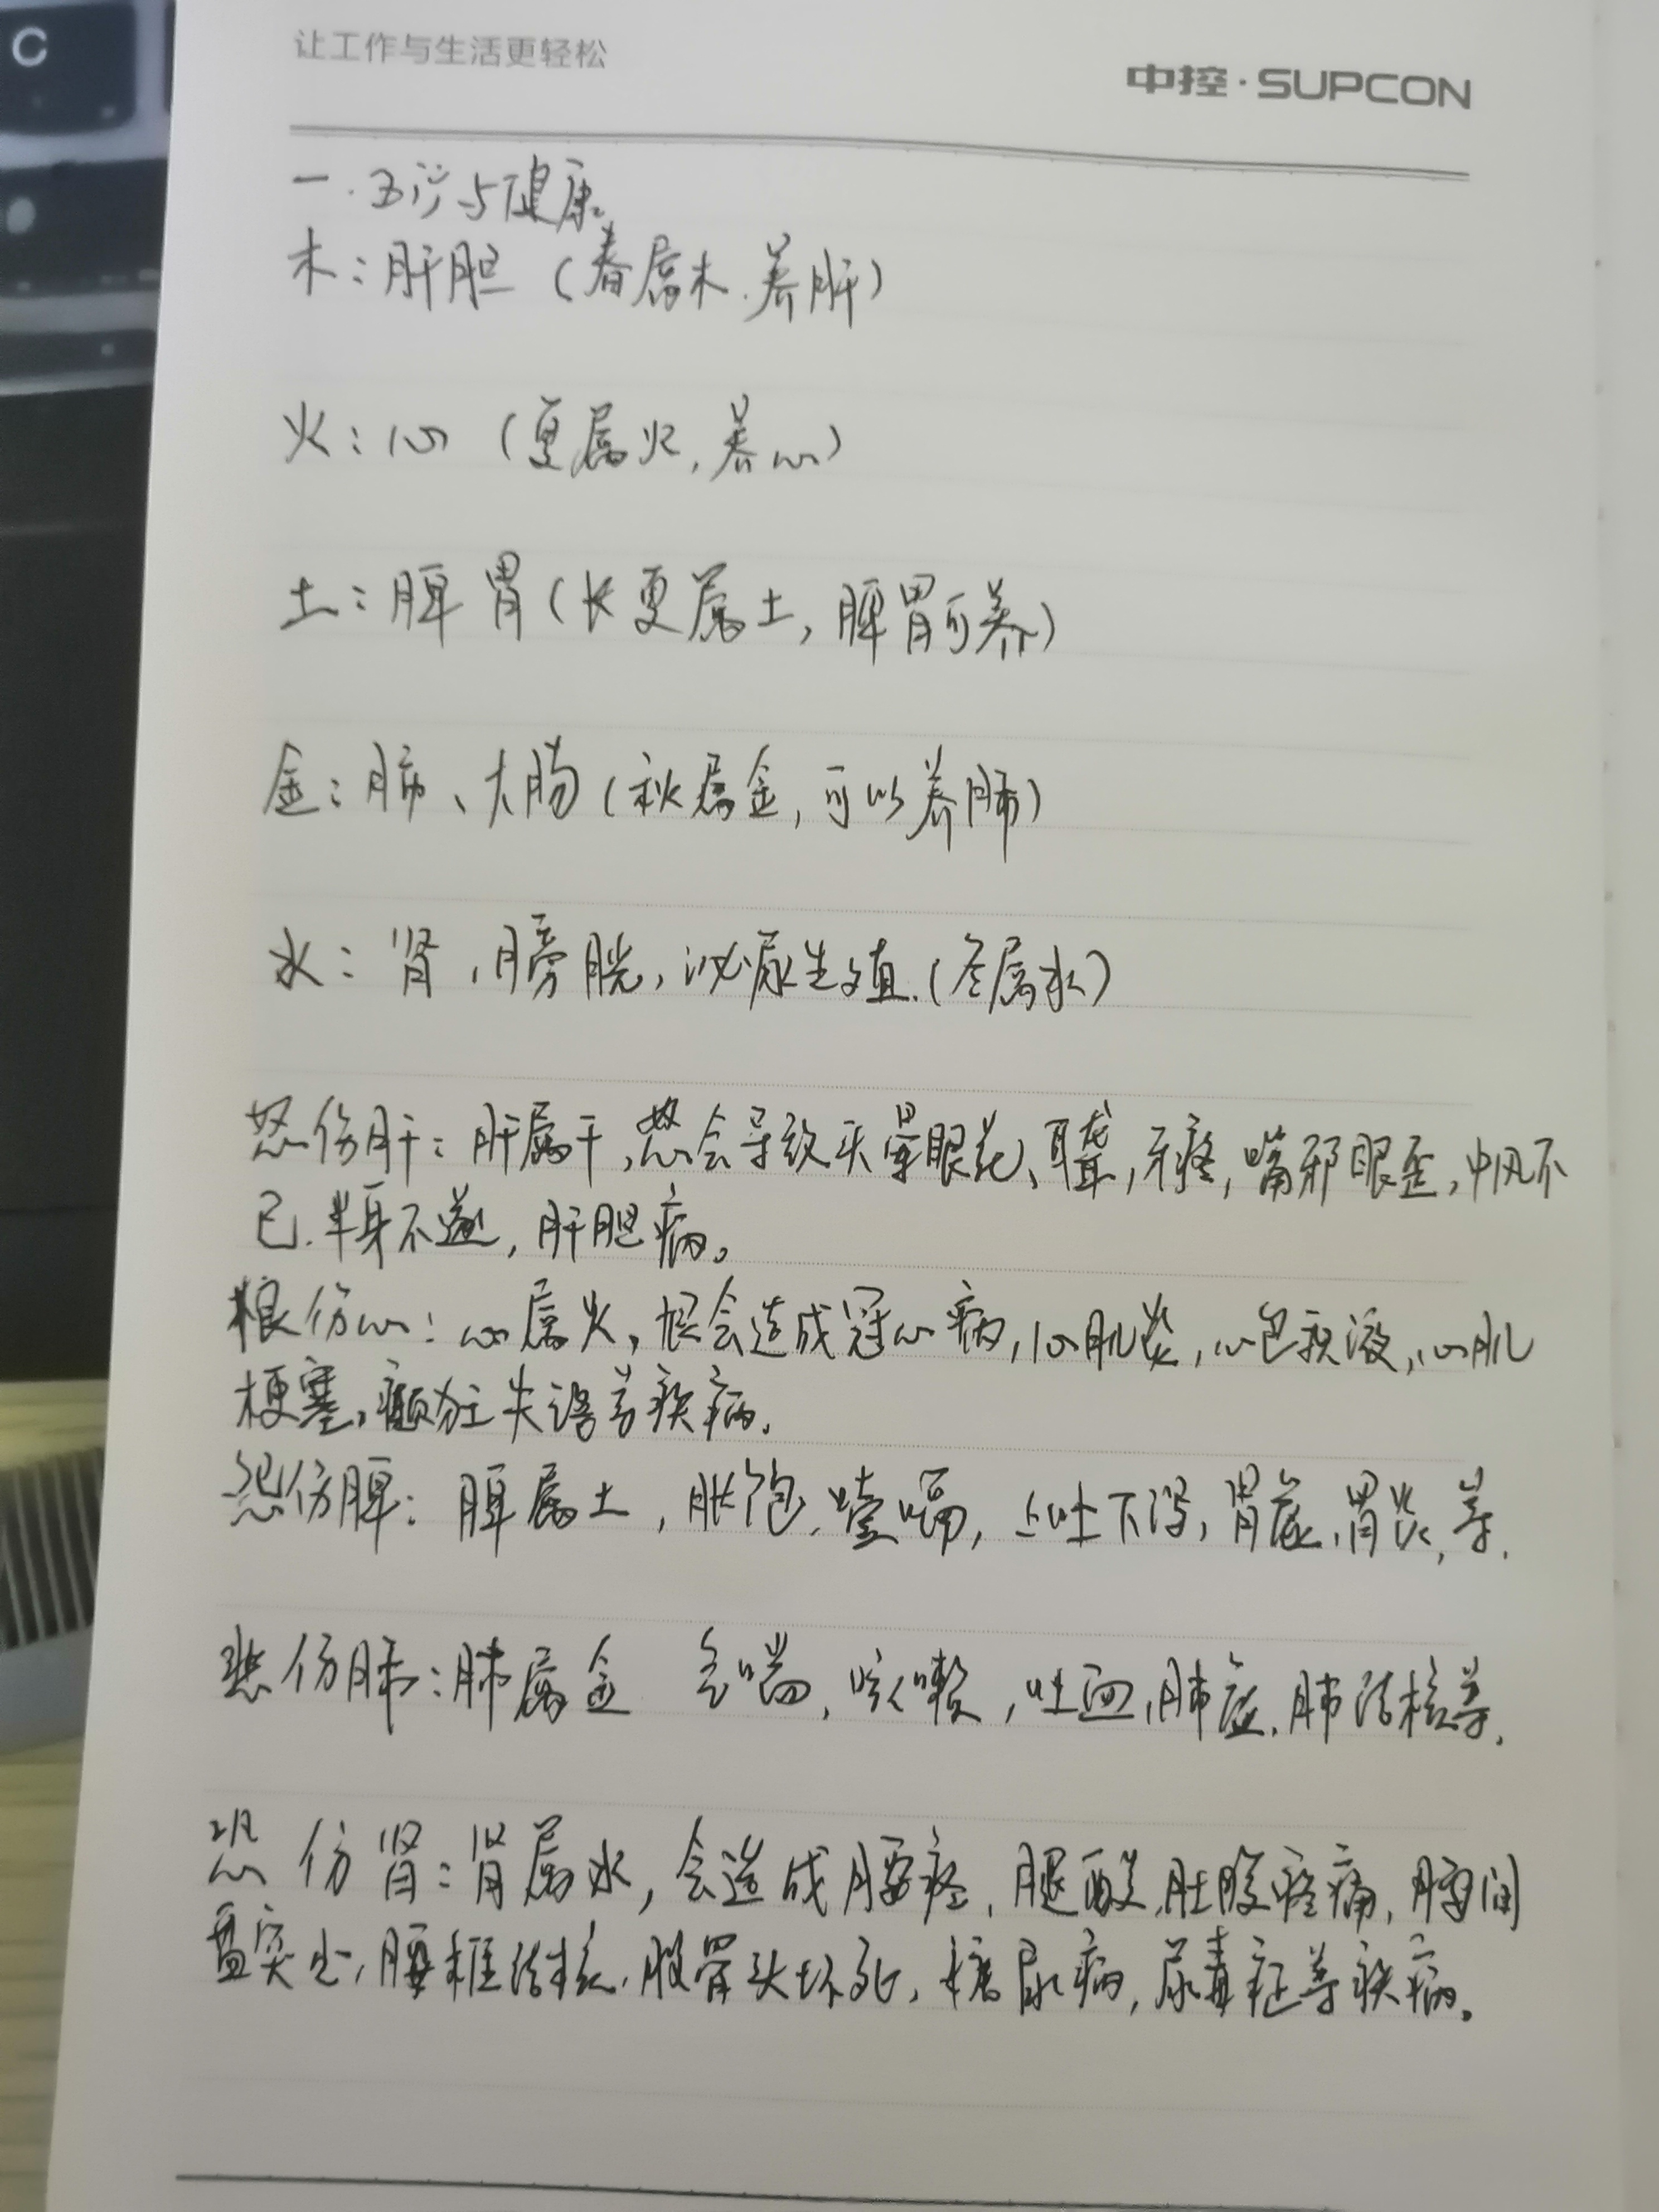 让工作与生活更轻松
中控·SUPCON
一.五行与健康
木：肝胆（春属木.养肝）
火：心（夏属火，养心）
土：脾胃（长夏属土，脾胃可养）
金：肺、大肠（秋属金，可以养肺）
水：肾，膀胱，泌尿生殖.（冬属水）
怒伤肝：肝属干，怒会导致头晕眼花、耳聋，牙疼，嘴邪眼歪，中风不
已.半身不遂，肝胆病。
心：心属火，恨会造成冠心病，心肌炎，心包积液，心肌
梗塞，癫狂失语等疾病，
怨伤脾：脾属土，胀饱.噎嗝，上吐下泻，胃症，胃炎，等.
悲伤肺：肺属金 气喘，咳嗽，吐血，肺症.肺结核等，
恐伤肾：肾属水，会造成腰疼，腿酸，肚腹疼痛，腰间
盘突出，腰椎结核.股骨头坏死，糖尿病，尿毒症等疾病。
C